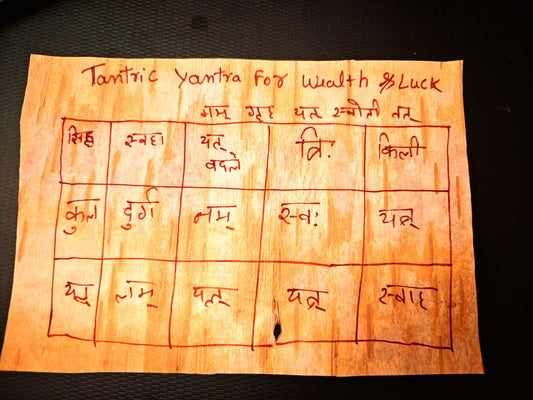 Tantric Yantra For Wealth & Luck
मम् गृह यत् स्वोती तत्
सिद्ध स्वहा यत् बदले त्रि: किली
कुल दुर्ग नम् स्व: यत्र्
यत्र् नम् यत्र् यत्र् स्वाह